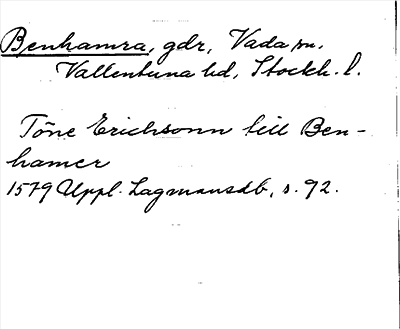 Benhamra, gdr, Vada sn.
Vallentuna hd, Stockh. l.
Töne Erichsonn till Ben-
hamer
1579 Uppl. Lagmansdb, s. 92.